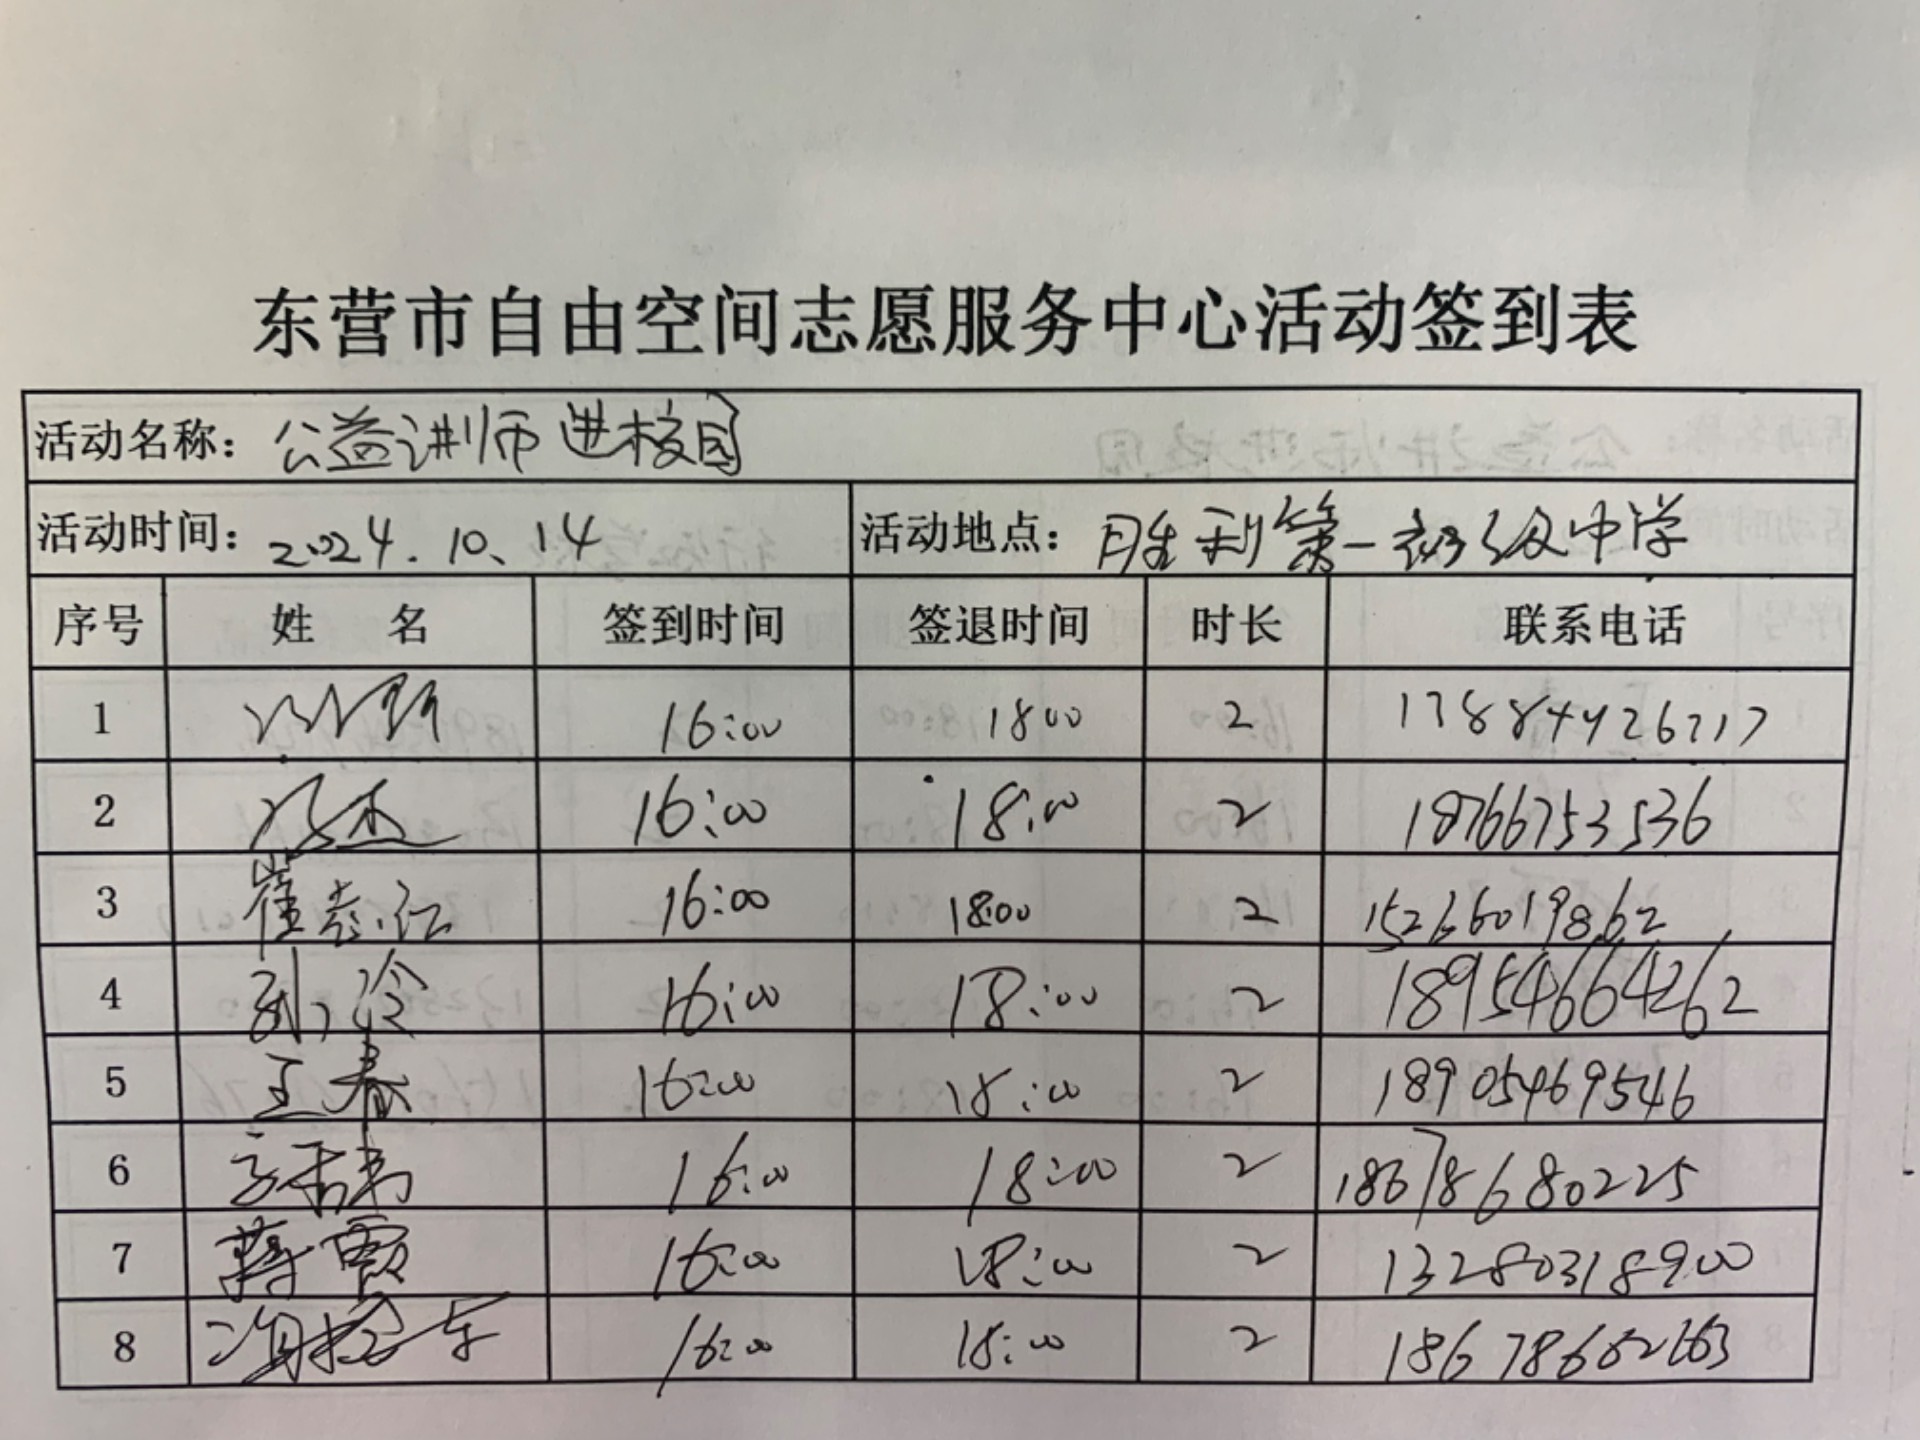 东营市自由空间志愿服务中心活动签到表
活动名称：公益讲师进校园
活动时间：2024.10.14 活动地点：胜利第一初级中学
序号 姓 名 签到时间 签退时间 时长 联系电话
1 16:00 1800 2
2 16:00 18:00 2 18766753536
3 崔志江 16:00 18:00 2 15266019862
4 刘冷 16:00 18:00 2 18954664262
5 王春 16:00 18:00 2 18905469546
6 16:00 18:00 2 18678680225
7 蒋霞 16:00 18:00 2 13280318900
8 16:00 18:00 2